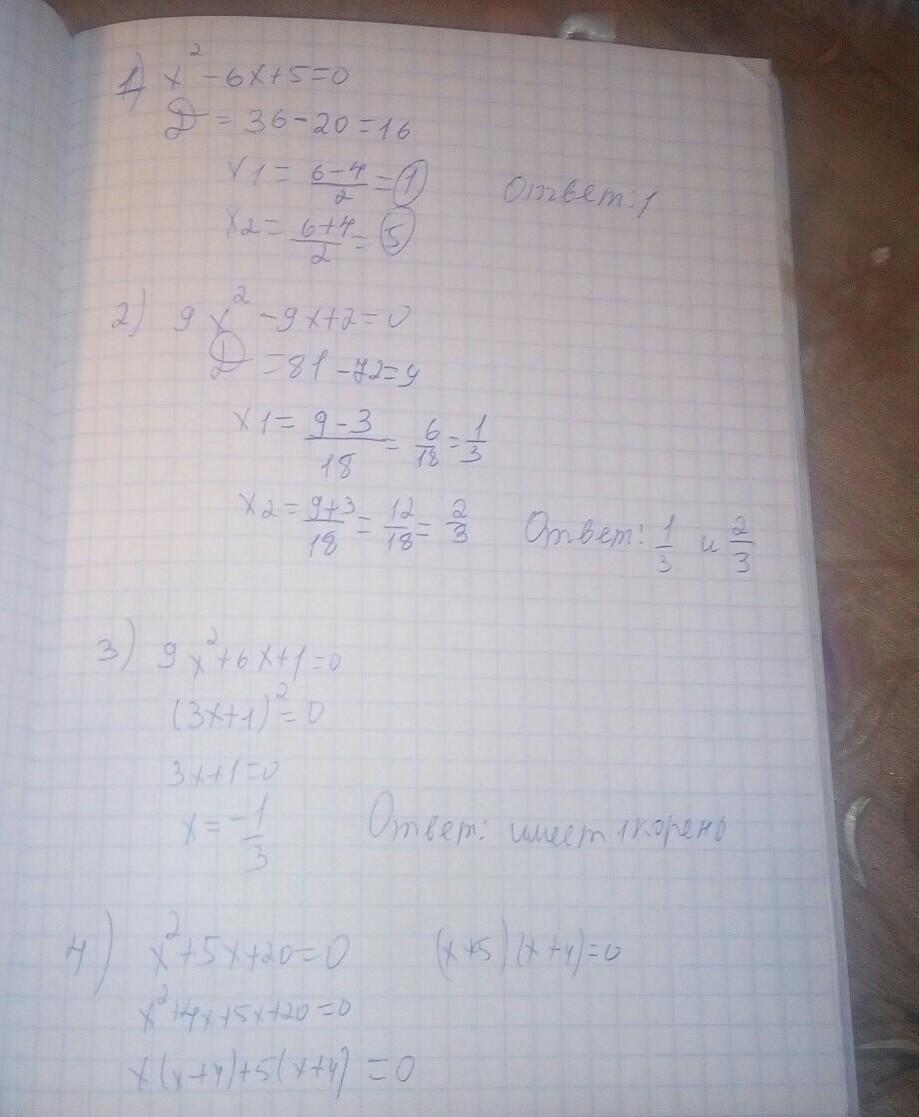 1) x² - 6x + 5 = 0
D = 36 - 20 = 16
x1 = (6-4)/2 = 1
Ответ: 1
x2 = (6+4)/2 = 5
2) 9x² - 9x + 2 = 0
D = 81 - 72 = 9
x1 = (9-3)/18 = 6/18 = 1/3
x2 = (9+3)/18 = 12/18 = 2/3 Ответ: 1/3 и 2/3
3) 9x² + 6x + 1 = 0
(3x+1)² = 0
3x + 1 = 0
x = -1/3 Ответ: имеет 1 корень
4) x² + 5x + 20 = 0 (x+5)(x+4) = 0
x² + 4x + 5x + 20 = 0
x(x+4) + 5(x+4) = 0